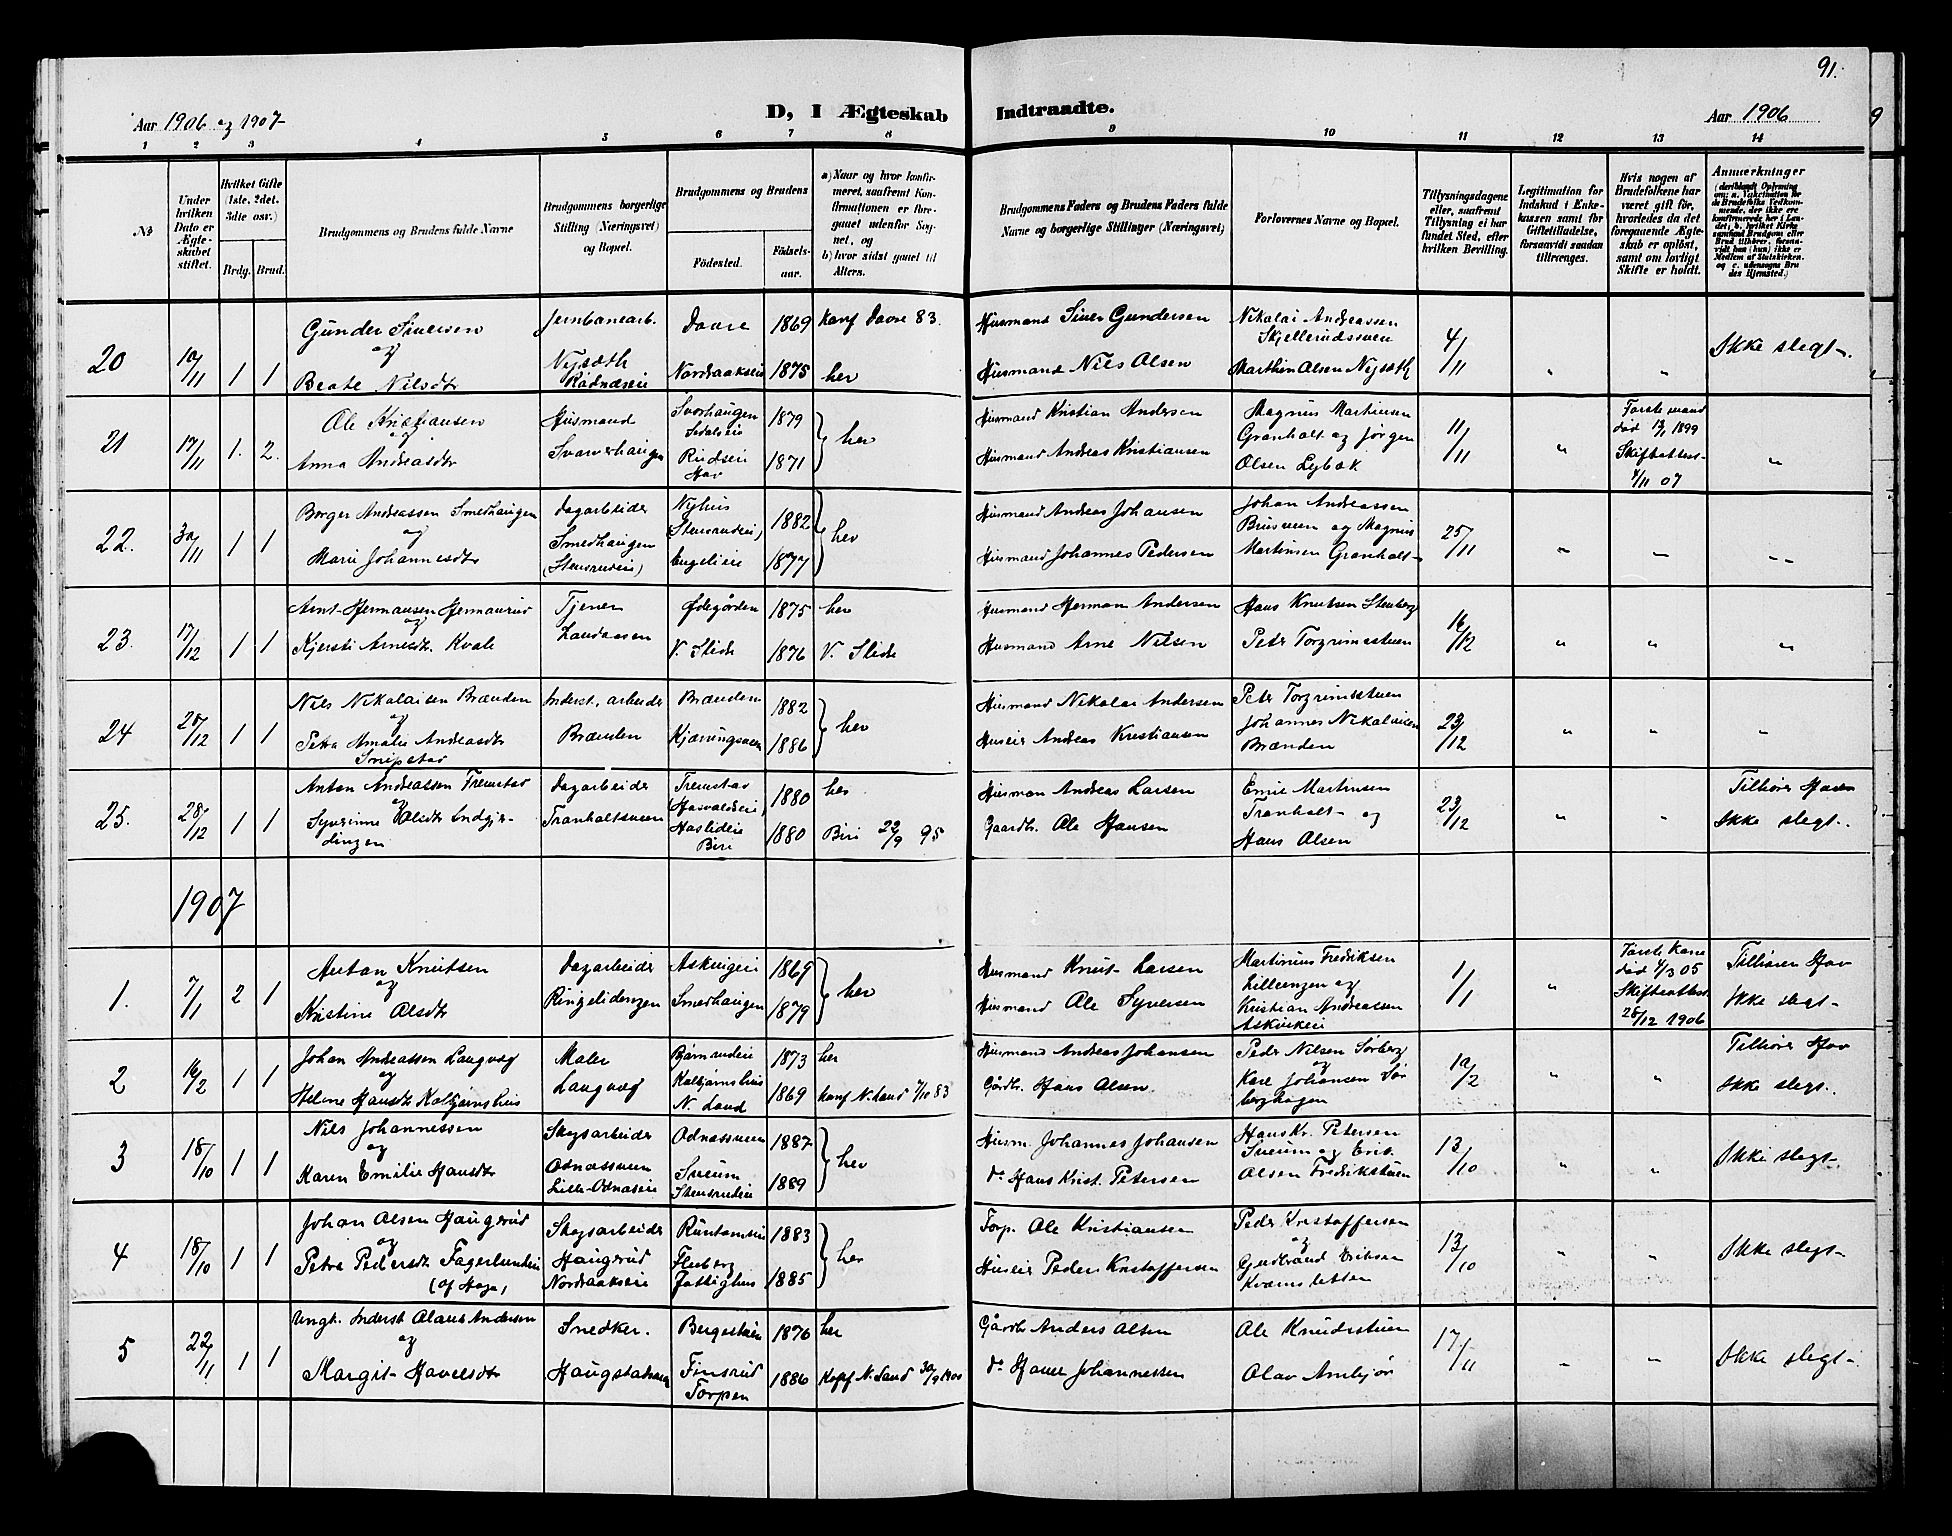 91.
Aar 1906 og 1907
D, I Ægteskab Indtraadte.
Aar 1906
1 2 3 4 5 6 7 8 9 10 11 12 13 14
No
Under hvilken Dato er Ægteskabet stiftet.
Hvilket Gifte (1ste, 2det, 3die osv.)
Brdg. Brud.
Brudgommens og Brudens fulde Navne
Brudgommens borgerlige Stilling (Næringsvei) og Bopæl.
Brudgommens og Brudens
Födested.
Födselsaar.
a) Naar og hvor konfirmeret, saafremt Konfirmationen er foregaaet udenfor Sognet, og
b) hvor sidst gaaet til Alters.
Brudgommens Faders og Brudens Faders fulde Navne og borgerlige Stillinger (Næringsvei)
Forlovernes Navne og Bopæl.
Tillysningsdagene eller, saafremt Tillysning ei har fundet Sted, efter hvilken Bevilling.
Legitimation for Indskud i Enkekassen samt for Giftetilladelse, forsaavidt saadan tiltrænges.
Hvis nogen af Brudefolkene har været gift för, hvorledes da det foregaaende Ægteskab er oplöst, samt om lovligt Skifte er holdt.
Anmærkninger
20 10/11 1 1 Gunder Siversen og Beate Nilsdtr
Jernbanearb. Nysæth
Daare 1869 Konf Daare 83.
1875 her
Husmand Siver Gundersen
Husmand Nils Olsen
Nikolai Andreassen
Marthin Olsen Nysæth
4/11 " " Ikke slegt.
21 17/11 1. 2. Ole Kristiansen og Anna Andreasdtr
Husmand
1879
1871 her
Husmand Kristian Andersen
Husmand Andreas Kristiansen
Magnus Martinsen Granholt og Jørgen Olsen Lybæk
11/11 " Første mand død 13/1 1899 Skifteattest 4/11 07 "
22. 30/11 1 1 Borger Andreassen Smedhaugen og Marie Johannesdtr
Dagarbeider Smedhaugen (Stensrudeie)
Nyhus (Stensrudeie) 1882
Engelieie 1877 her
Husmand Andreas Johansen
Husmand Johannes Pedersen
Johan Andreassen og Magnus Martinsen Granholt
25/11 " " "
23. 17/12 1 1 Arnt Hermansen Hermanrud og Kjersti Arnesdtr. Kvale
Tjener Landaasen
Ødegården 1875 her
V. Slidr 1876 V. Slidr
Husmand Herman Andersen
Husmand Arne Nilsen
Hans Knutsen Stenberg
Peter Torgrimsstuen
16/12 " " "
24 28/12 1 1 Nils Nikolaisen Brænden og Petra Amalie Andreasdtr
Inderst, arbeider Brænden
Brænden 1882
1886 her
Husmand Nikolai Andersen
Huseier Andreas Kristiansen
Peter Torgrimsstuen
Johannes Nikolaisen Brænden
23/12 " " "
25. 28/12 1 1 Anton Andreassen Fremstad og Syverinne Olsdtr
Dagarbeider Tranholtsveen
1880 her
Haslideie Biri 1880 Biri 22/9 95
Husman Andreas Larsen
Gaardbr. Ole Hansen
Emil Martinsen Tranholt og Hans Olsen
23/12 " " Tilhører Hov Ikke slegt.
1907
1. 7/1 2 1 Anton Knutsen og Kristine Olsdtr
Dagarbeider Ringelidengen
1869
Smedhaugen 1879 her
Husmand Knut Larsen
Husmand Ole Syversen
Martinius Fredriksen Lilleengen og Kristian Andreassen
1/1 " Første kone død 4/3 05 Skifteattest 28/12 1906 Tilhører Hov Ikke slegt
2 16/2 1 1 Johan Andreassen Langvæg og Helene Hansdtr Kolbjørnshus
Maler Langvæg
1873 her
Kolbjørnshus N. Land 1869 Konf N. Land 7/10 83
Husmand Andreas Johansen
Gårdbr. Hans Olsen
Peder Nilsen Sørberg og Karl Johansen Sørberghagen
10/2 " " Tilhører Hov Ikke slegt.
3 18/10 1 1 Nils Johannessen og Karen Emilie Hansdtr
Skogsarbeider Odnæsveen Lille-Odnæseie
Odnæsveen 1887
Sveum Stensrudeie 1889 her
Husm. Johannes Johansen
do Hans Krist. Petersen
Hans Kr. Petersen Sveum og Erik Olsen Fredrikstuen
13/10 " " Ikke slegt.
4 18/10 1 1 Johan Olsen Haugerud og Petra Pedersdtr Fagerlundeie (af Haga)
Skogsarbeider Haugerud Nordraakseie
1883
Fluberg Fattighus 1885 her
Torp. Ole Kristiansen
Huseier Peder Kristoffersen
Peder Kristoffersen og Gudbrand Eriksen
13/10 " " Ikke slegt
5 22/11 1 1 Ungk. Inderst Olaus Andersen og Margit Havelsdtr
Snedker.
Bergestuen 1876 her
Finsrud Torpen 1886 Konf N. Land 30/9 1900
Gårdb Anders Olsen
do Havel Johannessen
Ole Knudsstuen
Olav Amlejør
17/11 " " Ikke slegt